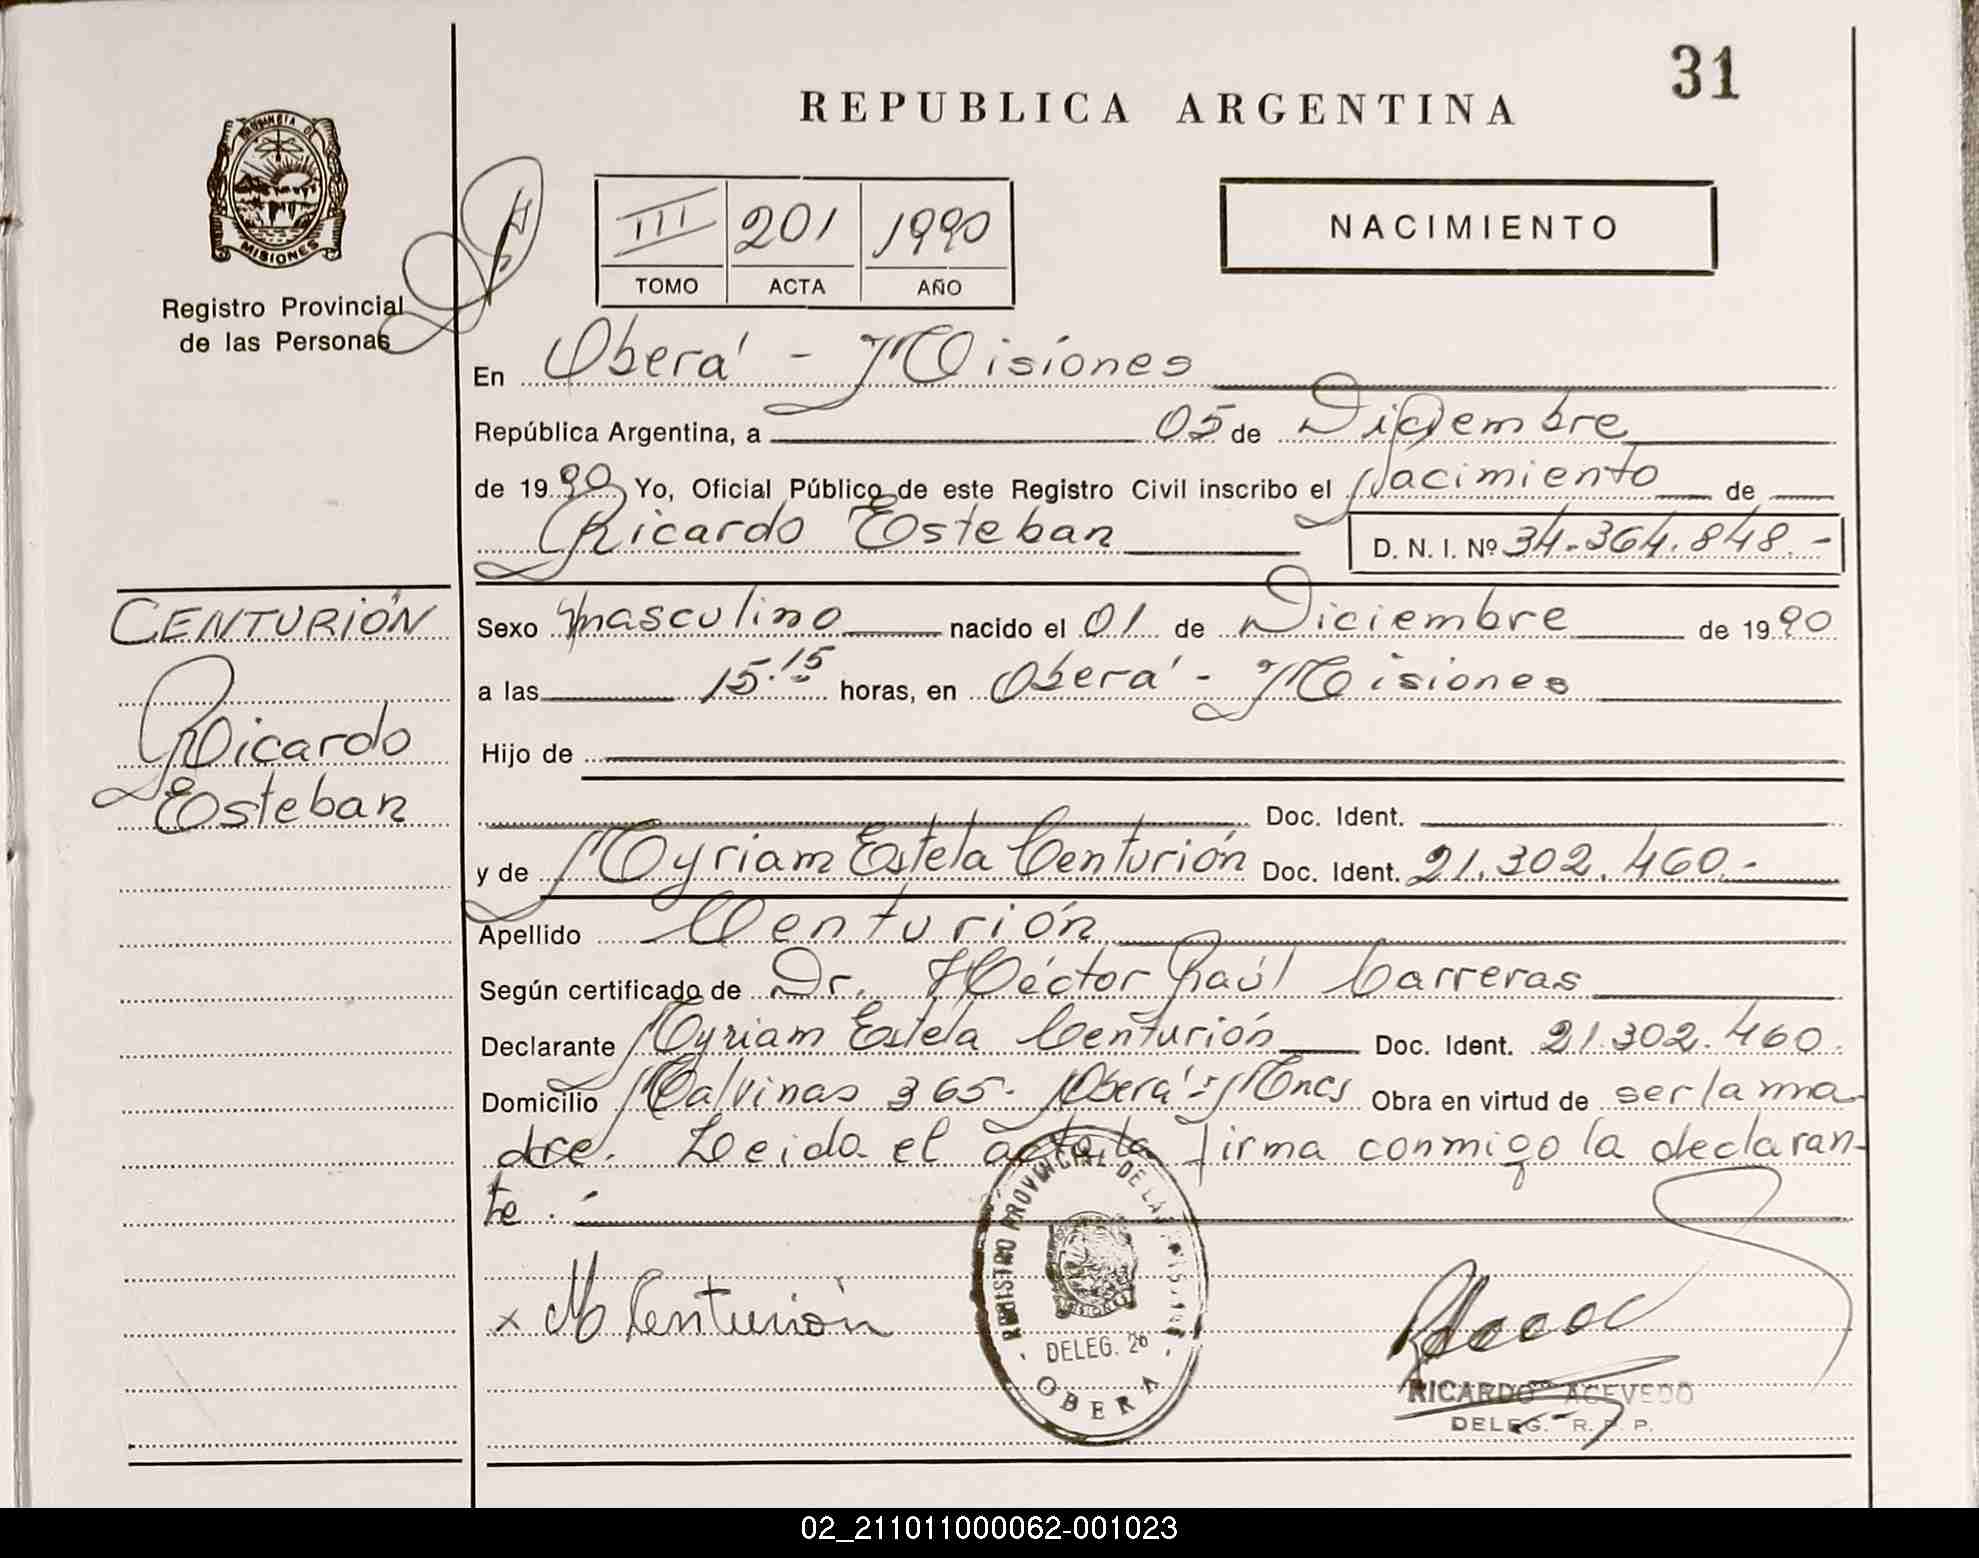 31
REPUBLICA ARGENTINA
PROVINCIA DE
MISIONES
Registro Provincial
de las Personas
III 201 1990
TOMO ACTA AÑO
NACIMIENTO
En Oberá - Misiones
República Argentina, a 05 de Diciembre
de 1990 Yo, Oficial Público de este Registro Civil inscribo el Nacimiento de
Ricardo Esteban D. N. I. Nº 34.364.848.-
CENTURIÓN
Ricardo
Esteban
Sexo masculino nacido el 01 de Diciembre de 1990
a las 15.15 horas, en Oberá - Misiones
Hijo de
Doc. Ident.
y de Myriam Estela Centurión Doc. Ident. 21.302.460.-
Apellido Centurión
Según certificado de Dr. Héctor Raúl Carreras
Declarante Myriam Estela Centurión Doc. Ident. 21.302.460.
Domicilio Malvinas 365. Oberá-Mnes Obra en virtud de ser la ma
dre. Leida el acta la firma conmigo la declaran-
te.-
x M Centurión
REGISTRO PROVINCIAL DE LAS
MISIONES
DELEG. 26
OBERA
RICARDO ACEVEDO
DELEG. R. P. P.
02_211011000062-001023